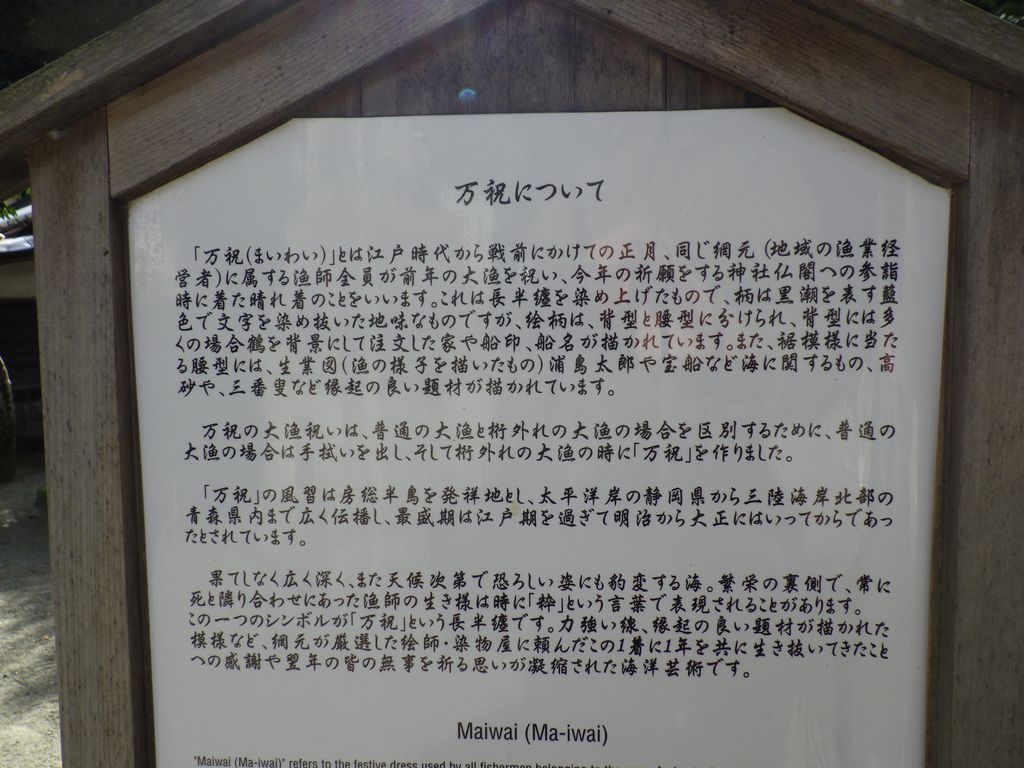 万祝について
「万祝(まいわい)」とは江戸時代から戦前にかけての正月、同じ網元(地域の漁業経
営者)に属する漁師全員が前年の大漁を祝い、今年の祈願をする神社仏閣への参詣
時に着た晴れ着のことをいいます。これは長半纏を染め上げたもので、柄は黒潮を表す藍
色で文字を染め抜いた地味なものですが、絵柄は、背型と腰型に分けられ、背型には多
くの場合鶴を背景にして注文した家や船印、船名が描かれています。また、裾模様に当た
る腰型には、生業図(漁の様子を描いたもの)浦島太郎や宝船など海に関するもの、高
砂や、三番叟など縁起の良い題材が描かれています。
万祝の大漁祝いは、普通の大漁と桁外れの大漁の場合を区別するために、普通の
大漁の場合は手拭いを出し、そして桁外れの大漁の時に「万祝」を作りました。
「万祝」の風習は房総半島を発祥地とし、太平洋岸の静岡県から三陸海岸北部の
青森県内まで広く伝播し、最盛期は江戸期を過ぎて明治から大正にはいってからであっ
たとされています。
果てしなく広く深く、また天候次第で恐ろしい姿にも豹変する海。繁栄の裏側で、常に
死と隣り合わせにあった漁師の生き様は時に「粋」という言葉で表現されることがあります。
この一つのシンボルが「万祝」という長半纏です。力強い線、縁起の良い題材が描かれた
模様など、網元が厳選した絵師・染物屋に頼んだこの1着に1年を共に生き抜いてきたこと
への感謝や翌年の皆の無事を祈る思いが凝縮された海洋芸術です。
Maiwai (Ma-iwai)
"Maiwai (Ma-iwai)" refers to the festive dress used by all fishermen belonging to the